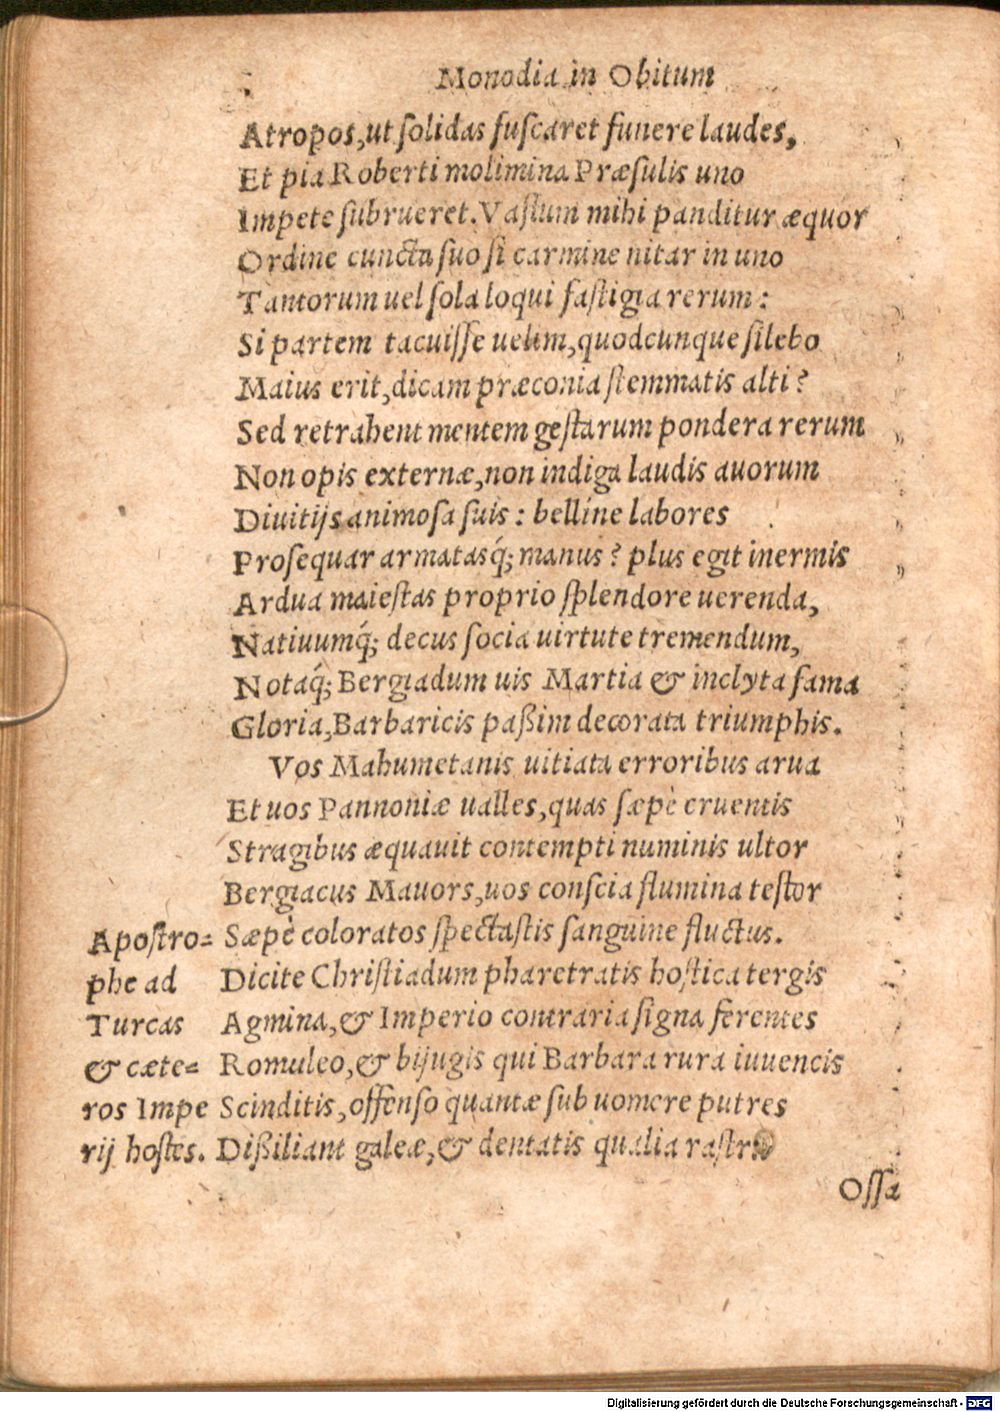 Monodia in Obitum
Atropos, ut solidas fuscaret funere laudes,
Et pia Roberti molimina Præsulis uno
Impete subrueret. Vastum mihi panditur æquor
Ordine cuncta suo si carmine nitar in uno
Tantorum uel sola loqui fastigia rerum:
Si partem tacuisse uelim, quodcunque silebo
Maius erit, dicam præconia stemmatis alti?
Sed retrahent mentem gestarum pondera rerum
Non opis externæ, non indiga laudis auorum
Diuitijs animosa suis: belline labores
Prosequar armatasq́; manus? plus egit inermis
Ardua maiestas proprio splendore uerenda,
Natiuumq́; decus socia uirtute tremendum,
Notaq́; Bergiadum uis Martia & inclyta fama
Gloria, Barbaricis paßim decorata triumphis.
Vos Mahumetanis uitiata erroribus arua
Et uos Pannoniæ ualles, quas sæpè cruentis
Stragibus æquauit contempti numinis ultor
Bergiacus Mauors, uos conscia flumina testor
Sæpè coloratos spectastis sanguine fluctus.
Dicite Christiadum pharetratis hostica tergis
Agmina, & Imperio contraria signa ferentes
Romuleo, & bijugis qui Barbara rura iuuencis
Scinditis, offenso quantæ sub uomere putres
Dißiliant galeæ, & dentatis qualia rastris
Apostro=
phe ad
Turcas
& cæte=
ros Impe
rij hostes.
Ossa
Digitalisierung gefördert durch die Deutsche Forschungsgemeinschaft - DFG